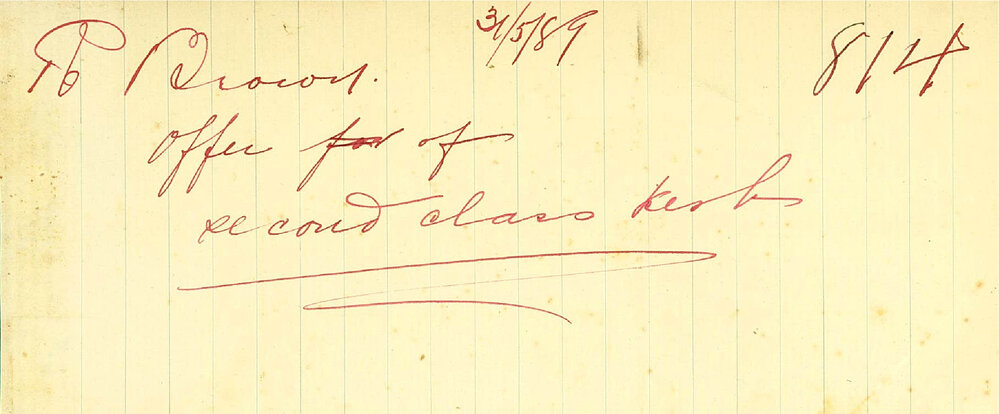 Brown.
31/5/89
814
Offer for of
second class kerb